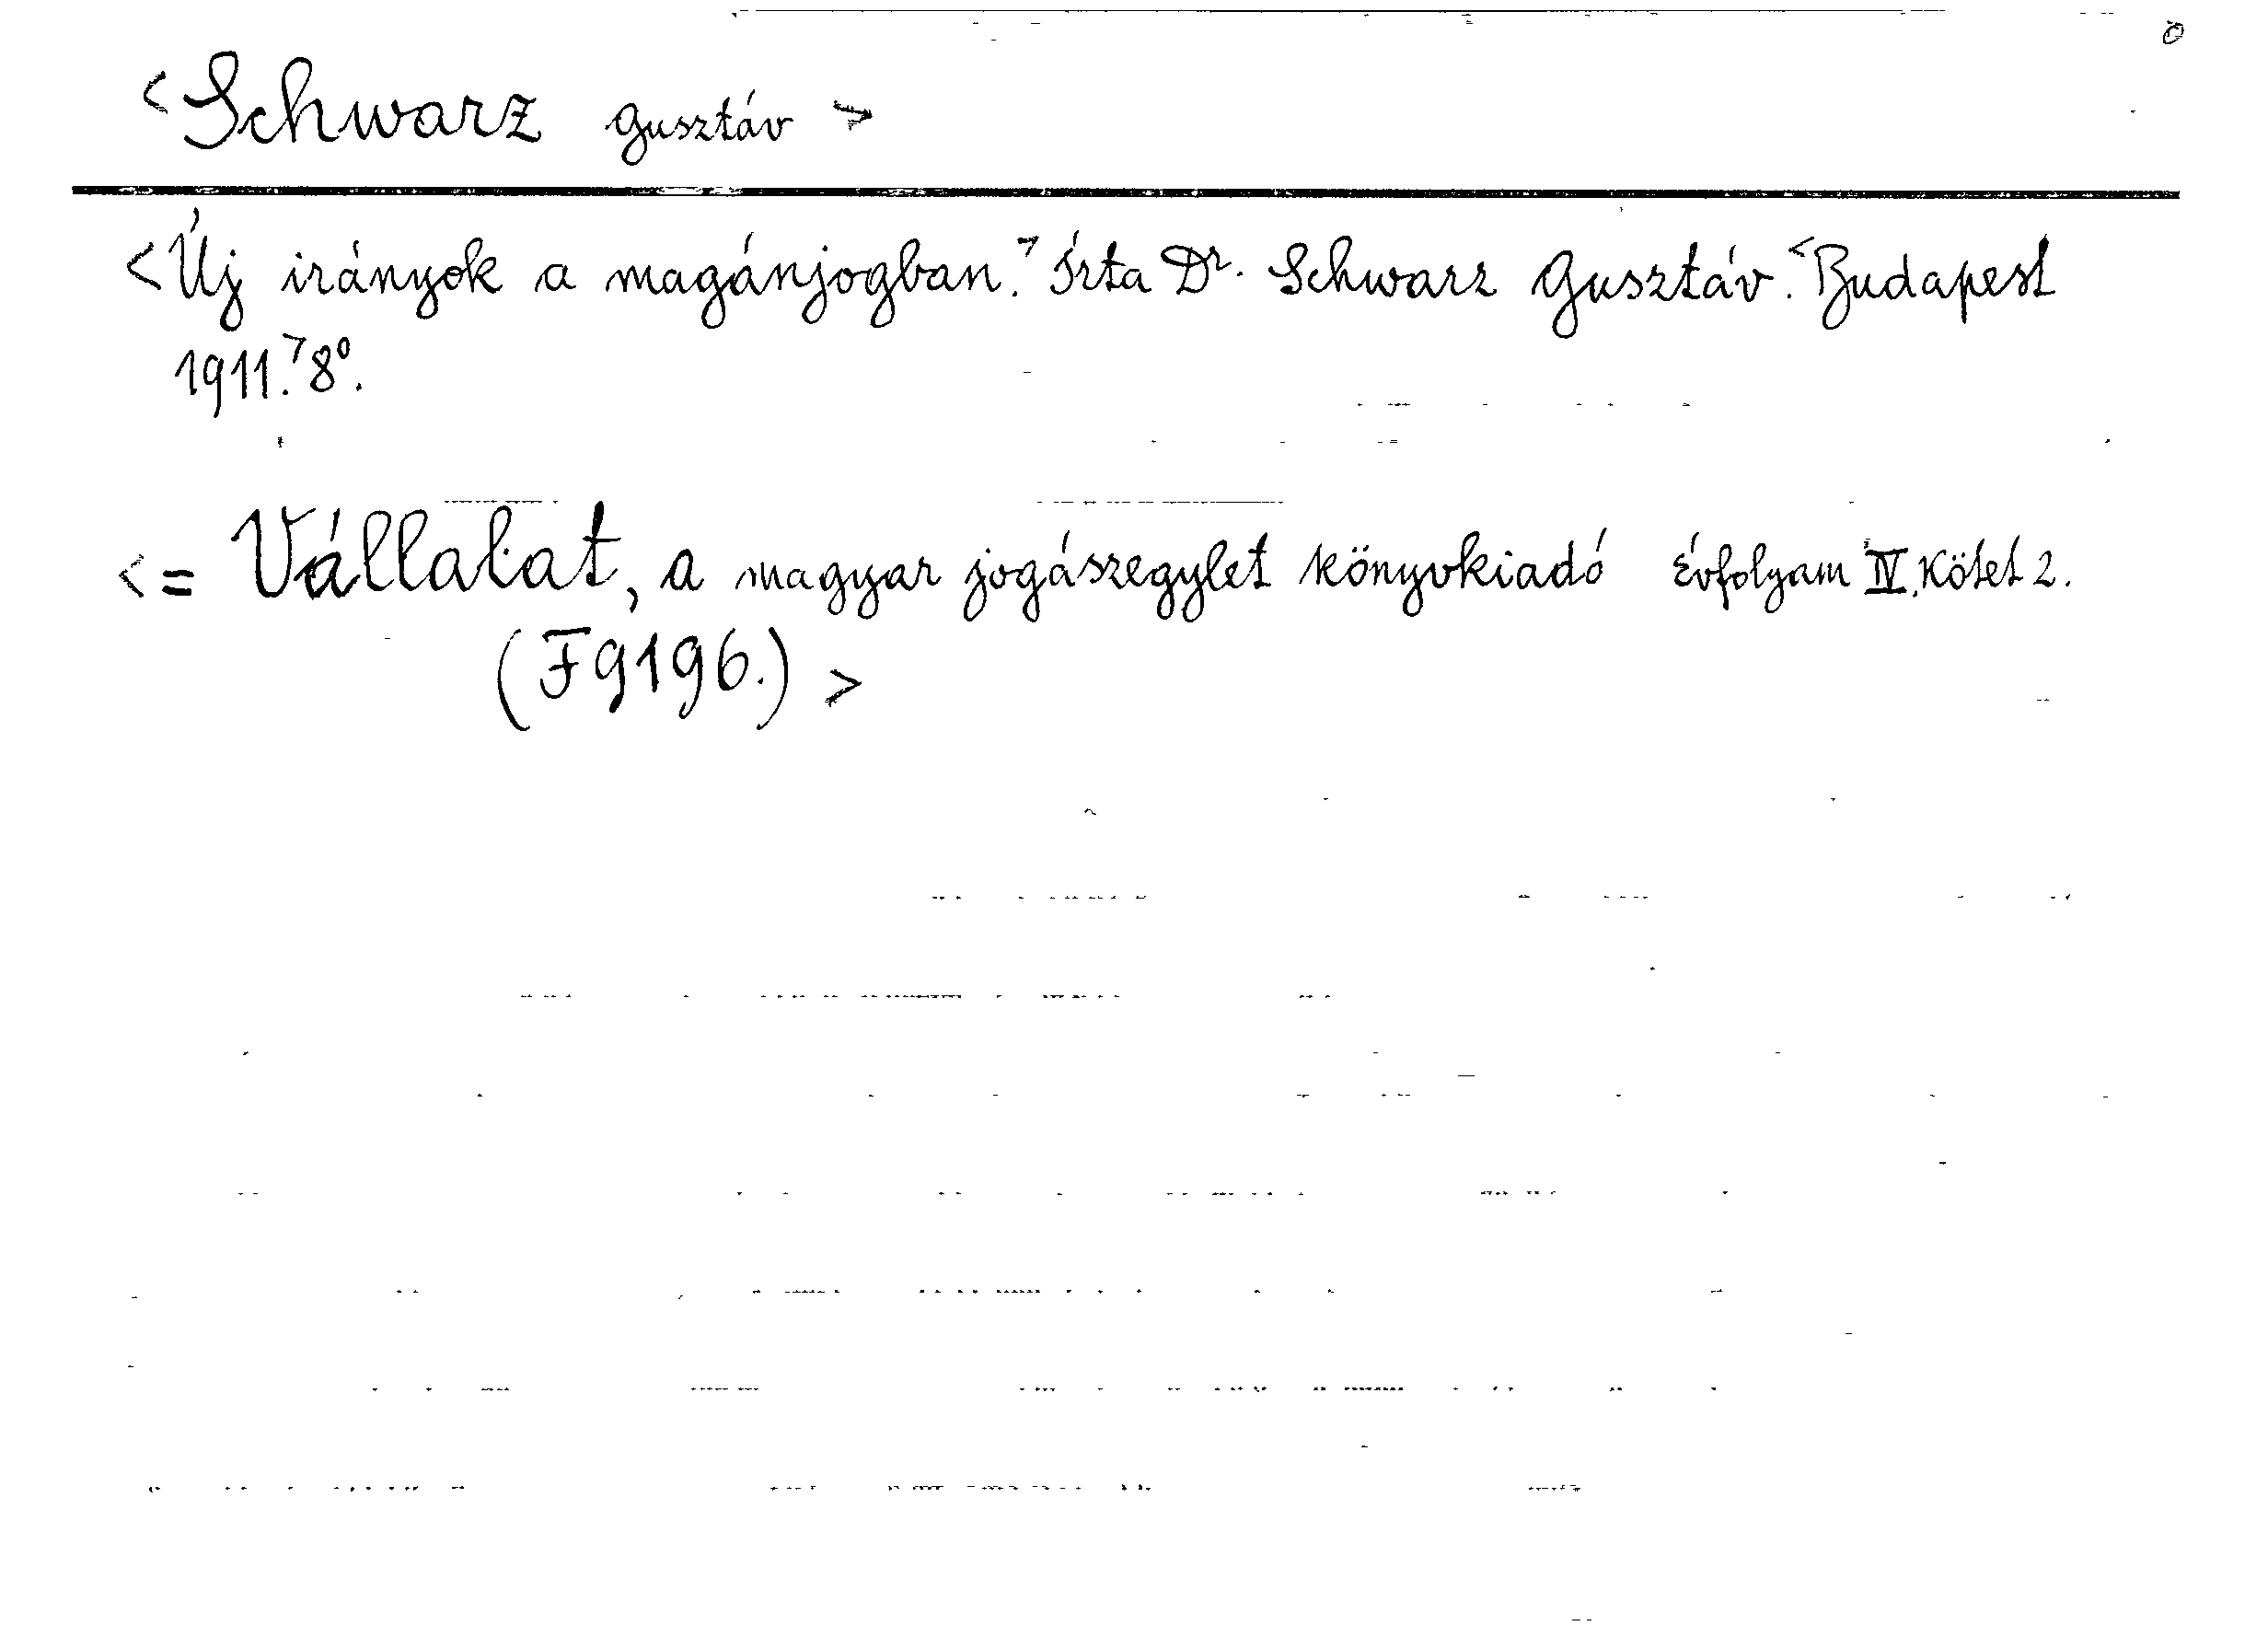 <Schwarz Gusztáv>
<Új irányok a magánjogban.> Írta Dr. Schwarz Gusztáv. <Budapest
1911.> 8º.
<= Vállalat, a magyar jogászegylet könyvkiadó Évfolyam IV. Kötet 2.
(F9196.)>